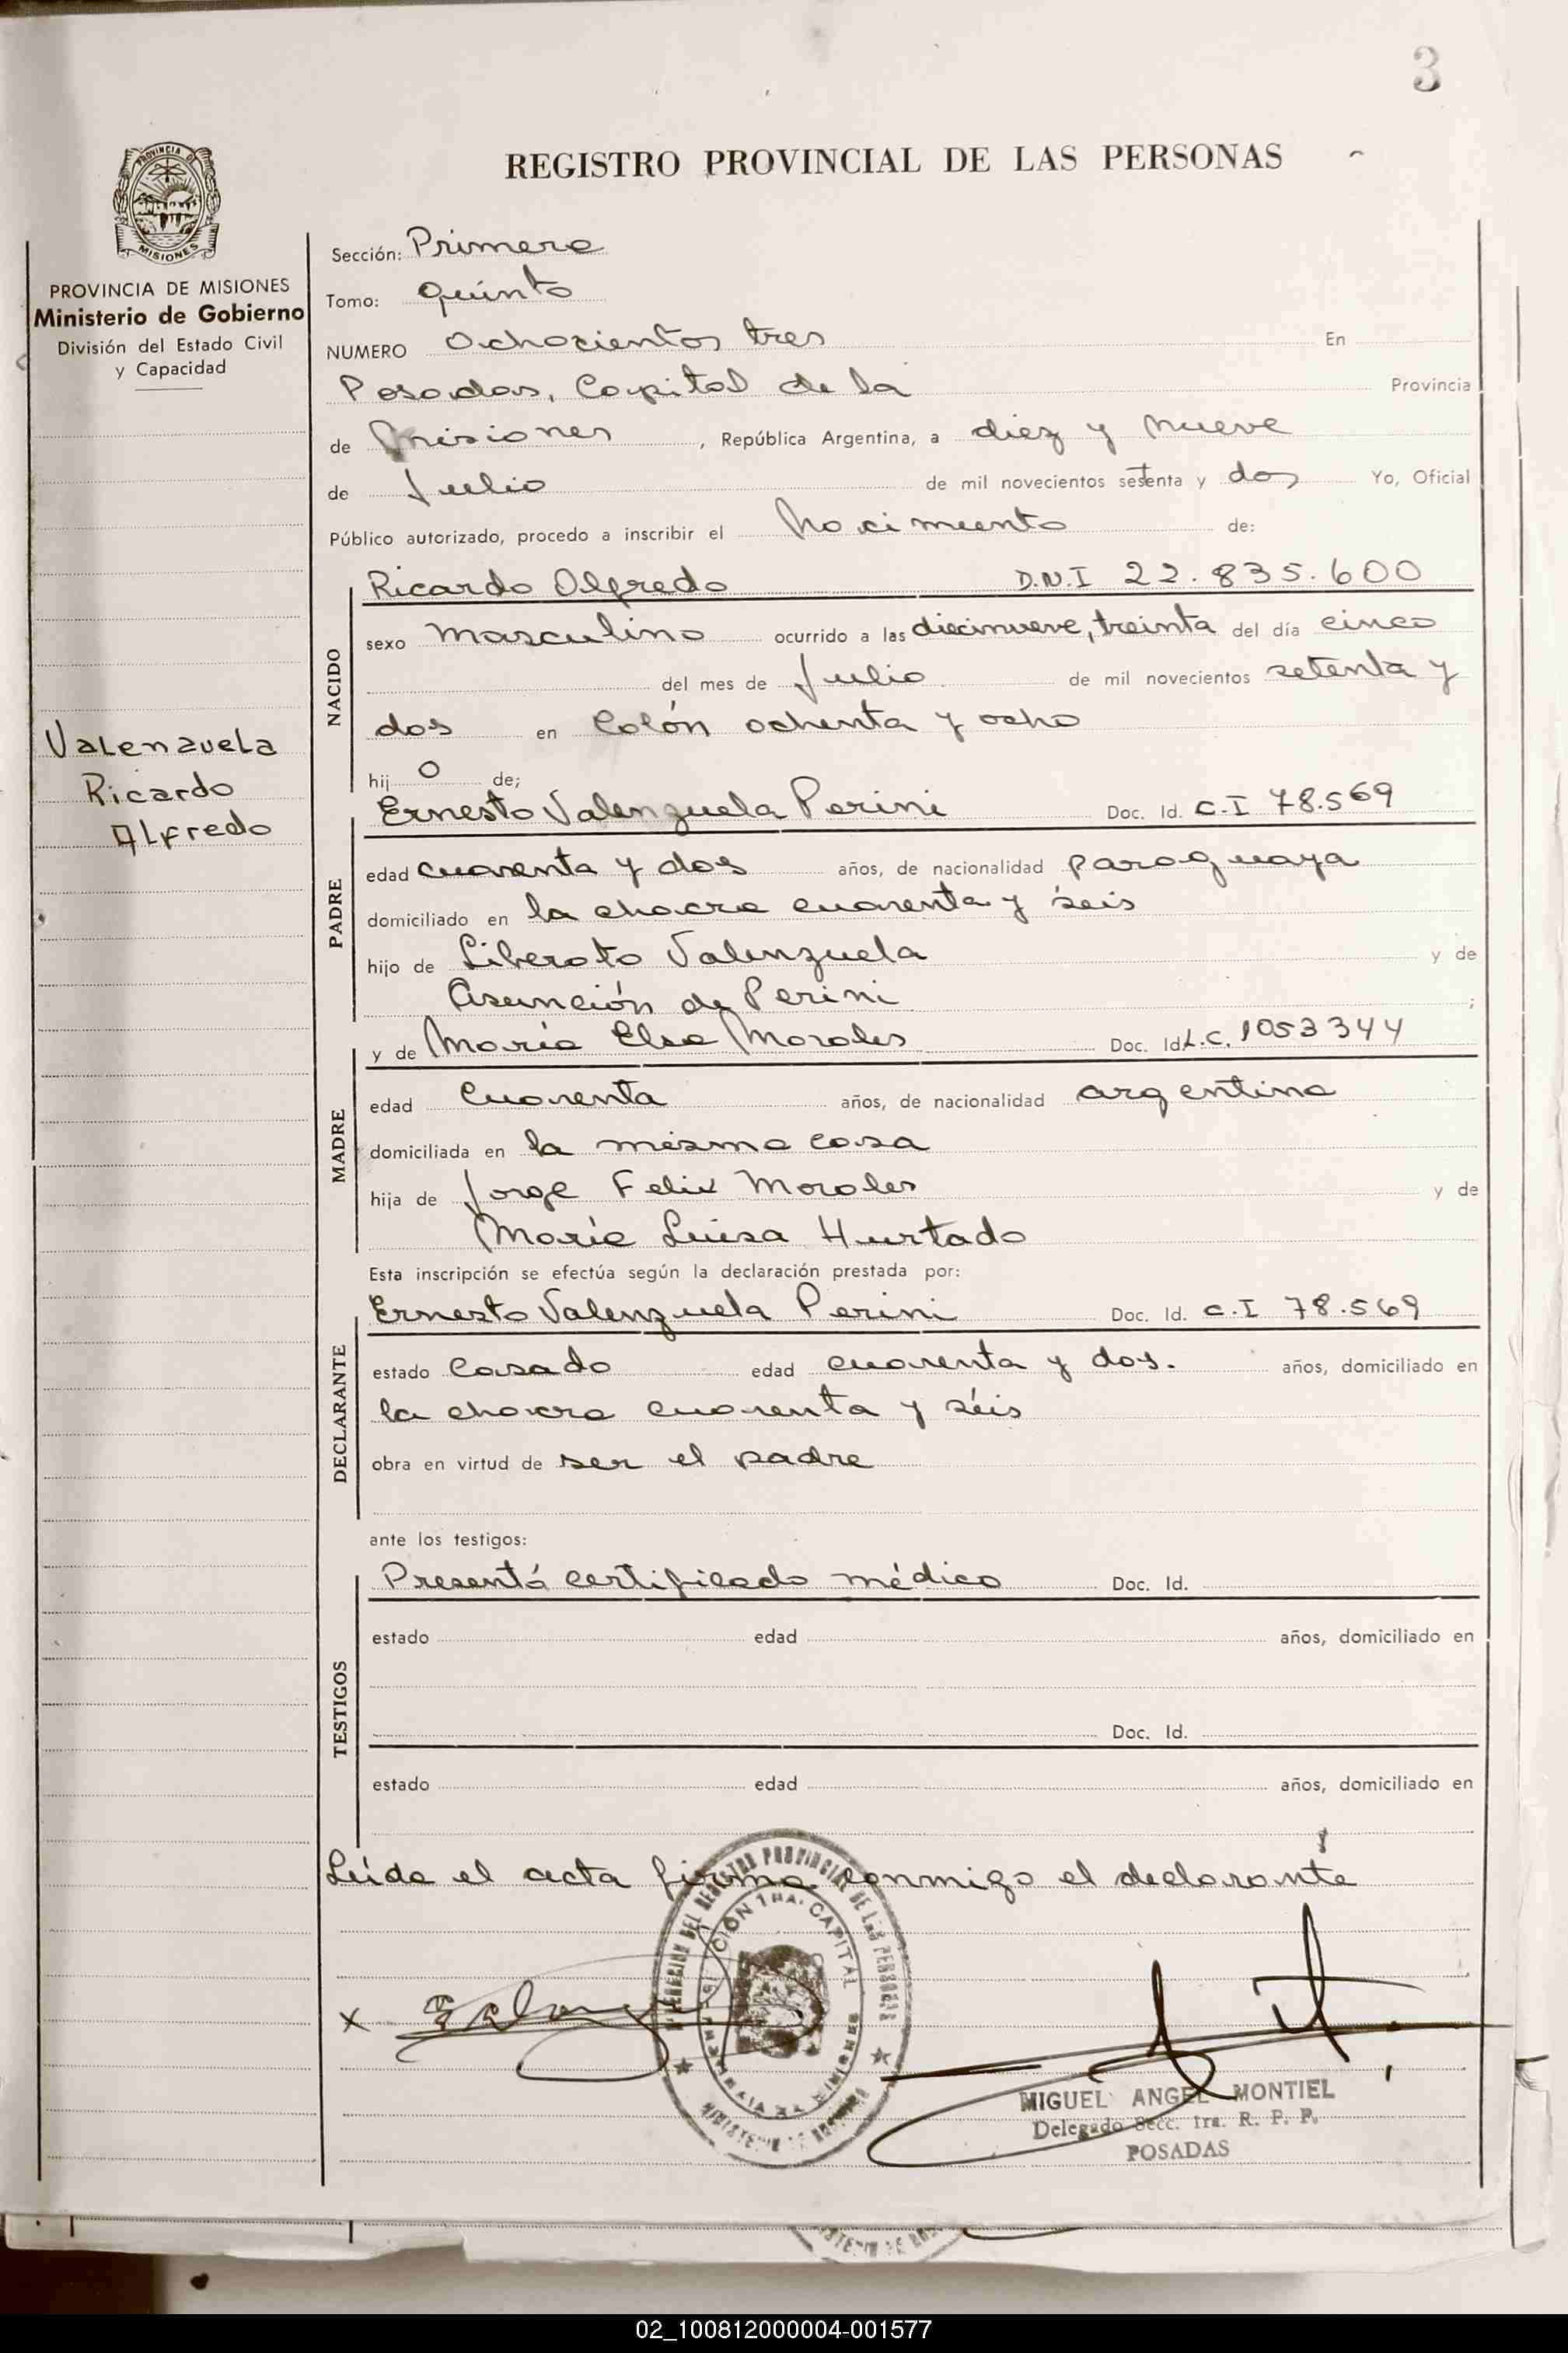 3
REGISTRO PROVINCIAL DE LAS PERSONAS
PROVINCIA DE
MISIONES
PROVINCIA DE MISIONES
Ministerio de Gobierno
División del Estado Civil
y Capacidad
Valenzuela
Ricardo
Alfredo
Sección: Primera
Tomo: Quinto
NUMERO Ochocientos tres En
Posadas, Capital de la Provincia
de Misiones, República Argentina, a diez y nueve
de Julio de mil novecientos setenta y dos Yo, Oficial
Público autorizado, procedo a inscribir el Nacimiento de:
NACIDO
Ricardo Alfredo D.N.I 22.835.600
sexo masculino ocurrido a las diecinueve, treinta del día cinco
del mes de Julio de mil novecientos setenta y
dos en Colón ochenta y ocho
hij o de;
PADRE
Ernesto Valenzuela Perini Doc. Id. C.I 78.569
edad cuarenta y dos años, de nacionalidad paraguaya
domiciliado en la chacra cuarenta y séis
hijo de Liberato Valenzuela y de
Asunción de Perini ;
MADRE
y de María Elsa Morales Doc. Id. L.C. 1053344
edad Cuarenta años, de nacionalidad argentina
domiciliada en la misma casa
hija de Jorge Felix Morales y de
María Luisa Hurtado
Esta inscripción se efectúa según la declaración prestada por:
DECLARANTE
Ernesto Valenzuela Perini Doc. Id. C.I 78.569
estado Casado edad cuarenta y dos. años, domiciliado en
la chacra cuarenta y séis
obra en virtud de ser el padre
ante los testigos:
TESTIGOS
Presentá certificado médico Doc. Id.
estado edad años, domiciliado en
Doc. Id.
estado edad años, domiciliado en
Leída el acta firma conmigo el declarante
DEL REGISTRO PROVINCIAL DE LAS PERSONAS
1RA. CAPITAL
MISIONES
x
MIGUEL ANGEL MONTIEL
Delegado Secc. 1ra. R. P. P.
POSADAS
02_100812000004-001577